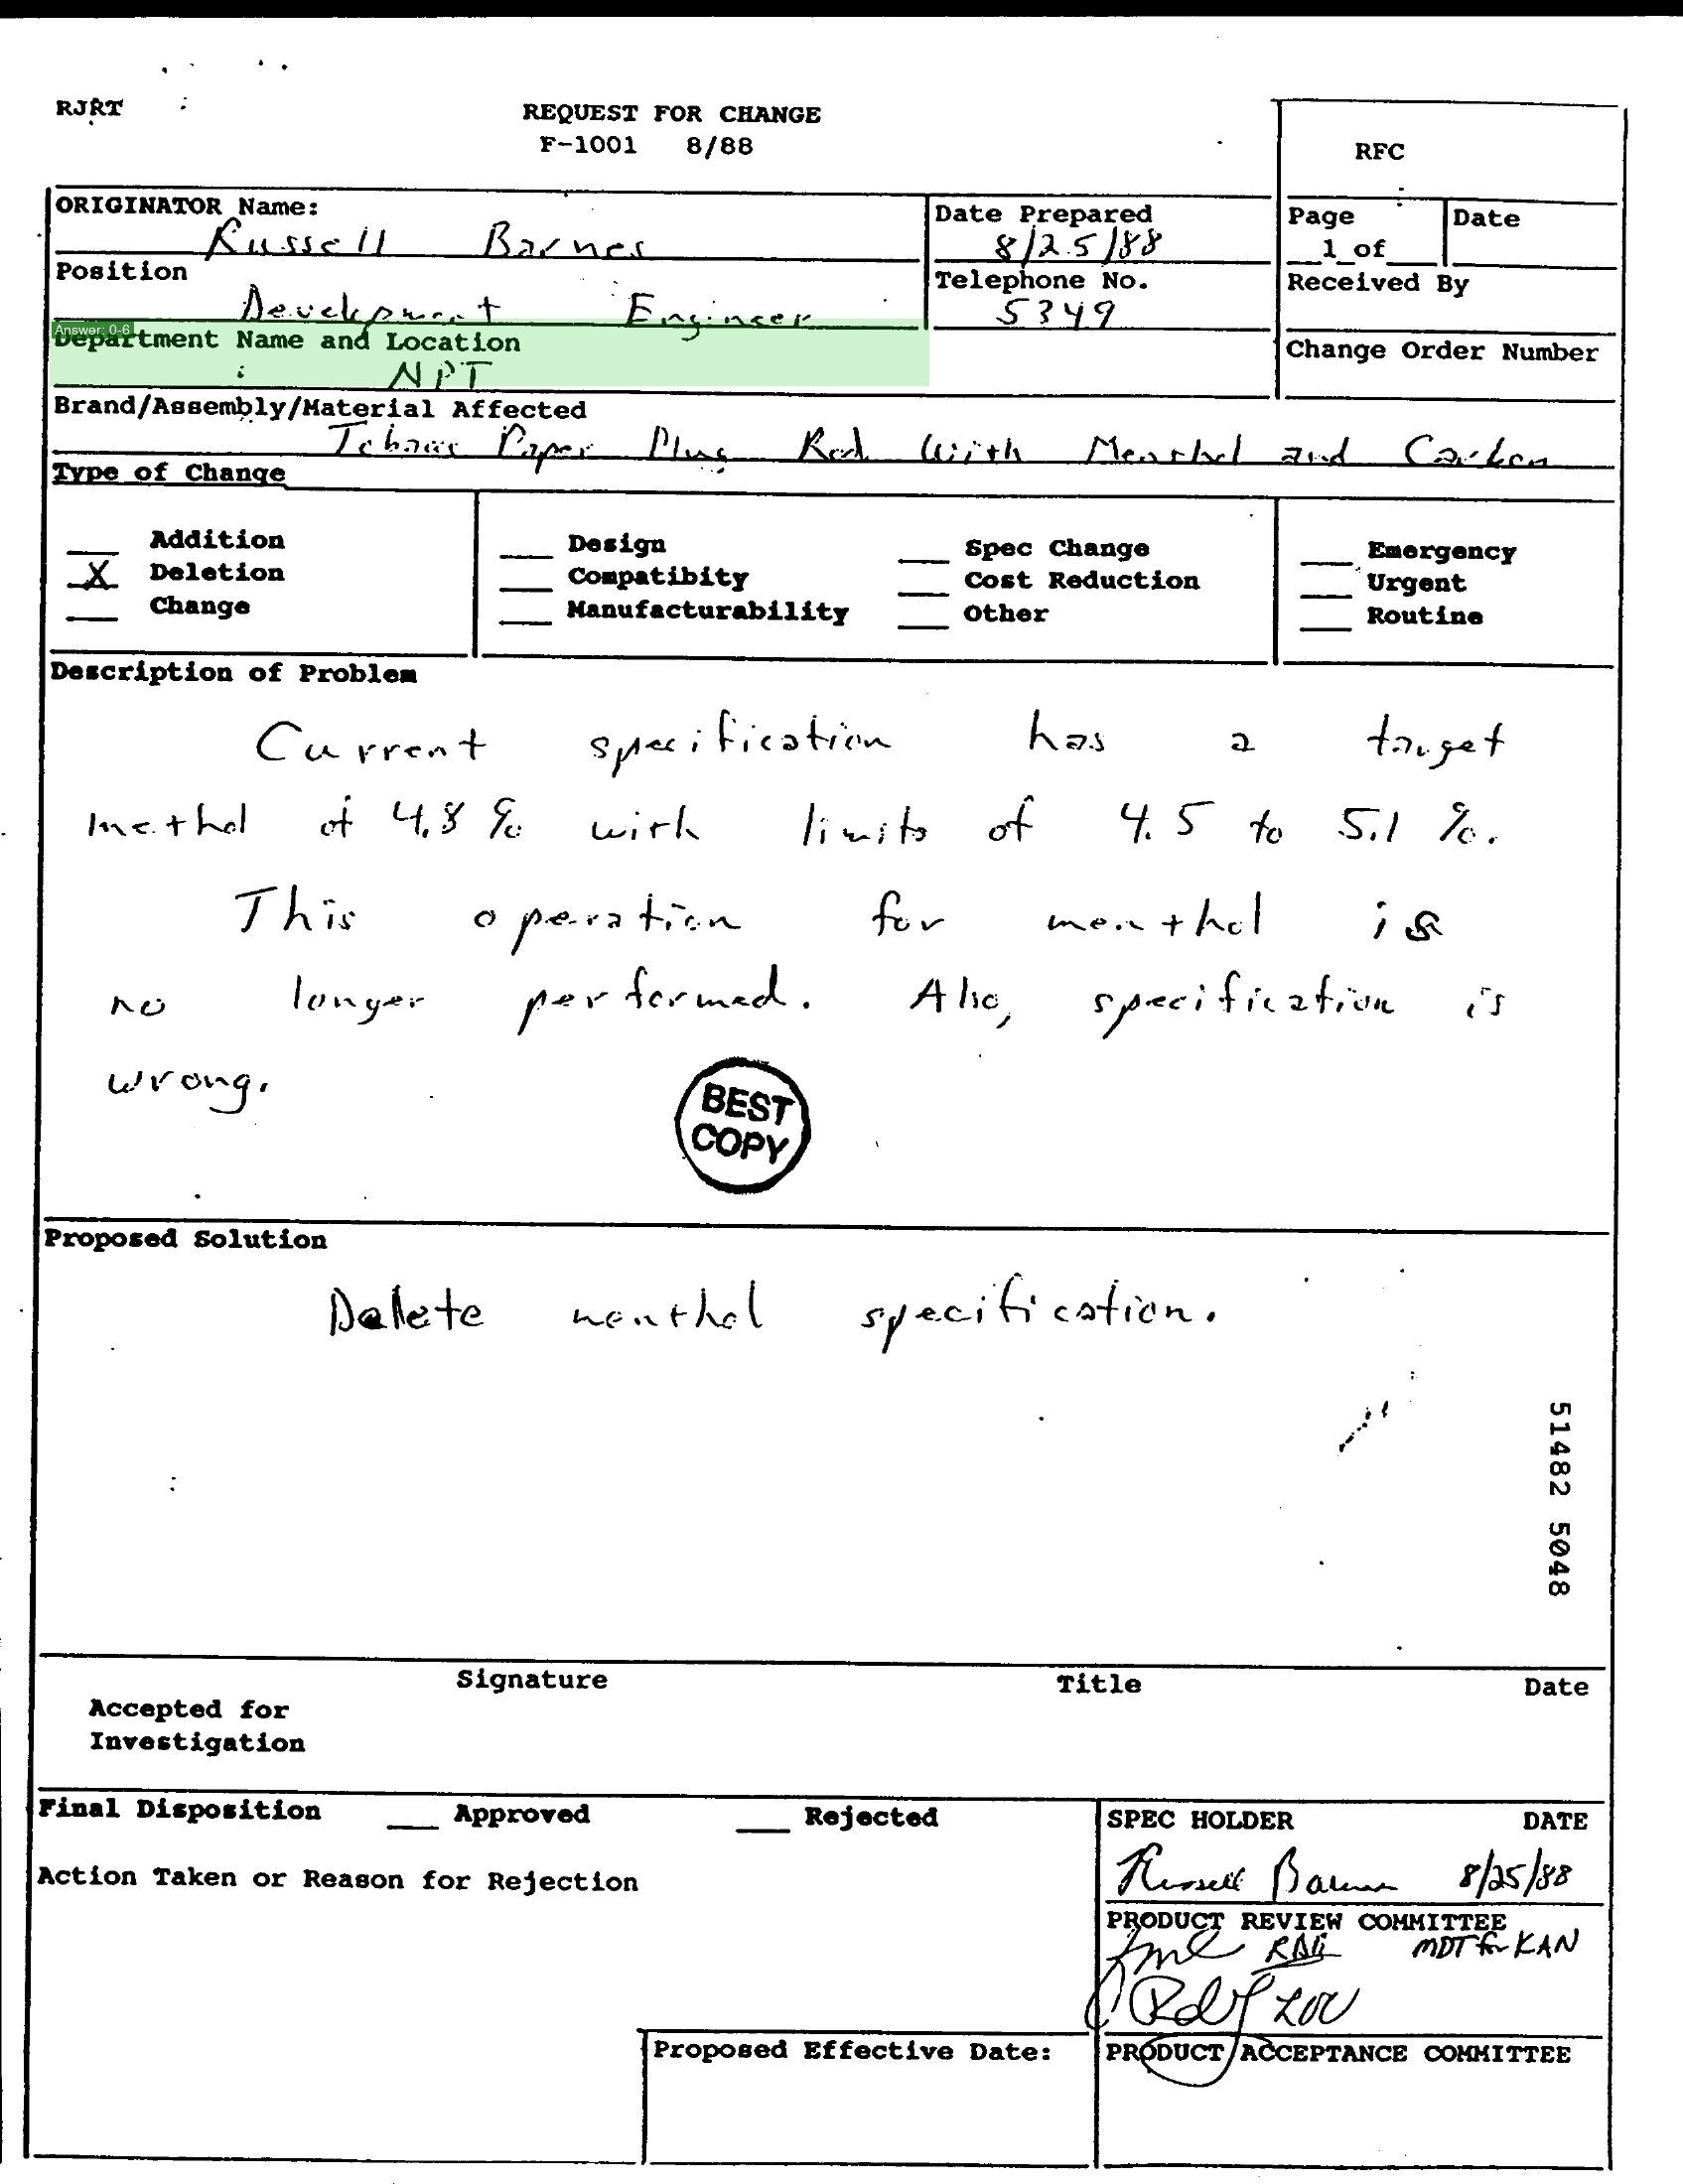 RJRT
REQUEST FOR CHANGE
F-1001 8/88
RFC
ORIGINATOR Name:
Russell Barnes
Date Prepared
8/25/88
Page
1 of
Date
Position
Development Engineer
Telephone No.
5349
Received By
Answer: 0-6
Department Name and Location
NPT
Change Order Number
Brand/Assembly/Material Affected
Tobacco Paper Plug Rod With Menthol and Carbon
Type of Change
Addition
X Deletion
Change
Design
Compatibity
Manufacturability
Spec Change
Cost Reduction
Other
Emergency
Urgent
Routine
Description of Problem
Current specification has a target
methol of 4.8 % with limits of 4.5 to 5.1 %.
This operation for menthol is
no longer performed. Also, specification is
wrong.
BEST
COPY
Proposed Solution
Delete menthol specification.
51482 5048
Signature Title Date
Accepted for
Investigation
Final Disposition Approved Rejected
Action Taken or Reason for Rejection
SPEC HOLDER DATE
Russell Barnes 8/25/88
PRODUCT REVIEW COMMITTEE
MDT for KAN
Proposed Effective Date:
PRODUCT ACCEPTANCE COMMITTEE